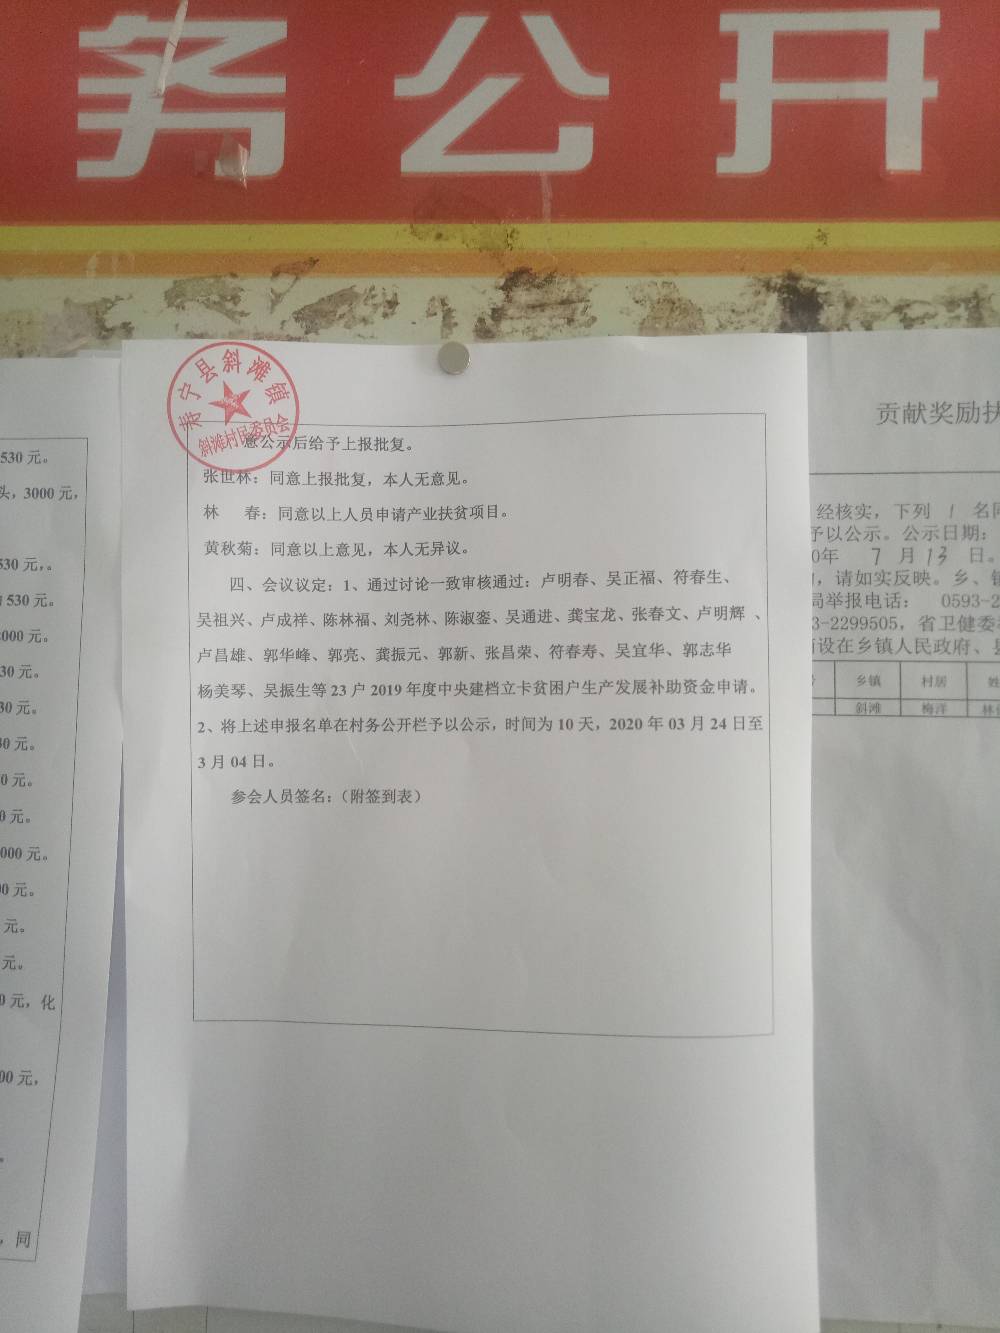 务公开
寿宁县斜滩镇
斜滩村民委员会
意公示后给予上报批复。
张世林：同意上报批复，本人无意见。
林 春：同意以上人员申请产业扶贫项目。
黄秋菊：同意以上意见，本人无异议。
四、会议议定：1、通过讨论一致审核通过：卢明春、吴正福、符春生、
吴祖兴、卢成祥、陈林福、刘尧林、陈淑銮、吴通进、龚宝龙、张春文、卢明辉 、
卢昌雄、郭华峰、郭亮、龚振元、郭新、张昌荣、符春寿、吴宜华、郭志华
杨美琴、吴振生等 23 户 2019 年度中央建档立卡贫困户生产发展补助资金申请。
2、将上述申报名单在村务公开栏予以公示，时间为 10 天，2020 年 03 月 24 日至
3 月 04 日。
参会人员签名：（附签到表）
530 元。
头，3000 元，
530 元，。
530 元。
000 元。
30 元。
30 元。
30 元。
0 元。
0 元。
000 元。
00 元。
元。
元。
0 元，化
00 元，
。
，同
贡献奖励扶
经核实，下列 1 名同
予以公示。公示日期：
0年 7 月 13 日。
，请如实反映。乡、镇
局举报电话： 0593-2
3-2299505，省卫健委
设在乡镇人民政府、县
乡镇 村居 姓
斜滩 梅洋 林